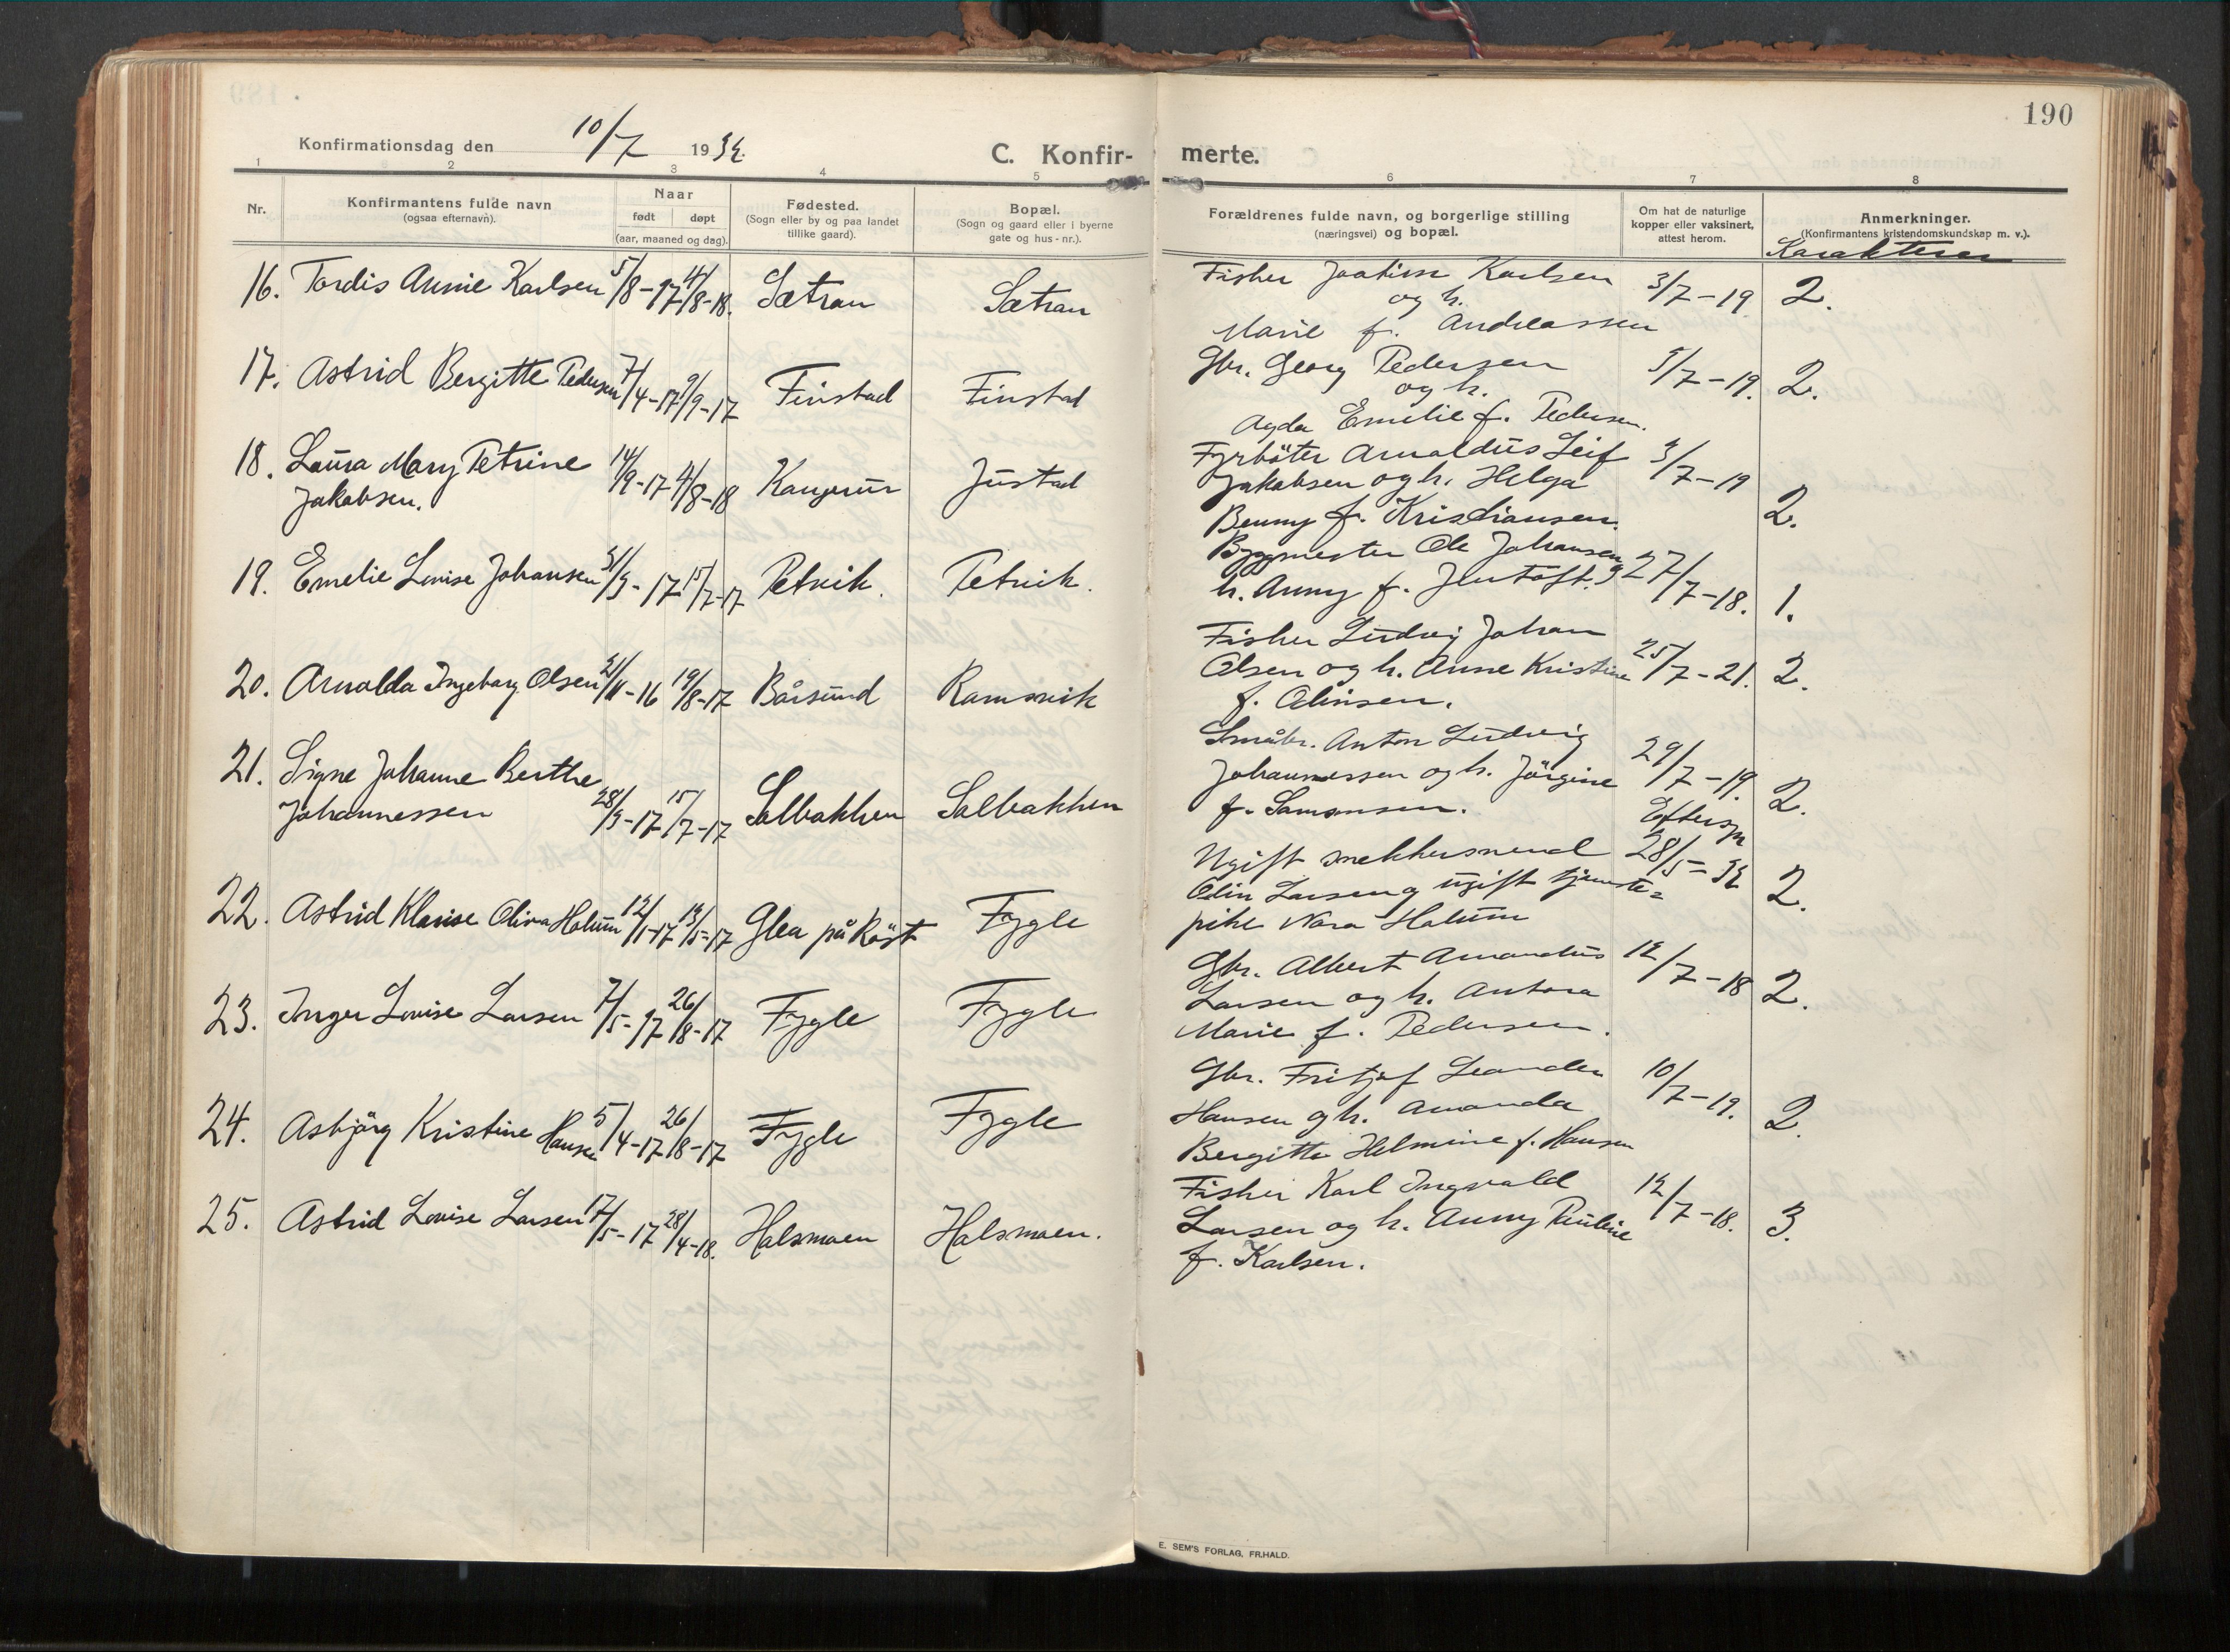 190
Konfirmationsdag den 10/7 1932.
C. Konfir- merte.
1 2 3 4 5 6 7 8
Nr.
Konfirmantens fulde navn
(ogsaa efternavn).
Naar
født døpt
(aar, maaned og dag).
Fødested.
(Sogn eller by og paa landet
tillike gaard).
Bopæl.
(Sogn og gaard eller i byerne
gate og hus-nr.).
Forældrenes fulde navn, og borgerlige stilling
(næringsvei) og bopæl.
Om hat de naturlige
kopper eller vaksinert,
attest herom.
Anmerkninger.
(Konfirmantens kristendomskundskap m. v.).
Karakterer
16. Tordis Annie Karlsen 5/8-17 4/8-18. Sætran Sætran
Fisker Joakim Karlsen 3/7-19 2.
og h.
Marie f. Andreassen
17. Astrid Bergitte Pedersen 7/4-17 9/9-17 Finstad Finstad
Gbr. Georg Pedersen 5/7-19. 2.
og h.
Agda Emelie f. Pedersen.
18. Laura Mary Petrine 14/9-17 4/8-18 Justad
Jakobsen.
Fyrbøter Arnoldus Leif 3/7-19
Jakobsen og h. Helga
Benny f. Kristiansen. 2.
19. Emelie Lovise Johansen 31/3-17 15/7-17 Petvik. Petvik.
Byggmester Ole Johansen
h. Anny f. Jentoft. 27/7-18. 1.
20. Arnolda Ingeborg Olsen 21/11-16 19/8-17 Bårsund Ramsvik
Fisker Ludvig Johan
Olsen og h. Anne Kristine 25/7-21. 2.
f. Olinsen.
21. Signe Johanne Berthe
Johannessen 28/3-17 15/7-17 Solbakken Solbakken
Småbr. Anton Ludvig
Johannessen og h. Jörgine 29/7-19. 2.
f. Samonsen.
Eftersyn
22. Astrid Klarise Oliva Holum 12/1-17 13/5-17 Glea på Röst Fygle
Ugift snekkersvend 28/5-32 2.
Olin Larsen og ugift tjeneste=
pike Nora Holum
23. Inger Lovise Larsen 7/5-17 26/8-17 Fygle Fygle
Gbr. Albert Amandus 12/7-18 2.
Larsen og h. Antora
Marie f. Pedersen.
24. Asbjörg Kristine Hansen 5/4-17 26/8-17 Fygle Fygle
Gbr. Fritjof Leander 10/7-19. 2.
Hansen og h. Amanda
Bergitte Helmine f. Hansen
25. Astrid Lovise Larsen 17/5-17 28/4-18. Halsmoen Halsmoen.
Fisker Karl Ingvald 12/7-18. 3.
Larsen og h. Anny Pauline
f. Karlsen.
E. SEM'S FORLAG, FR.HALD.